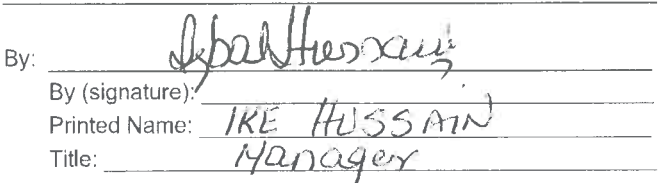 By: Iqbal Hussain
By (signature):
Printed Name: IKE HUSSAIN
Title: Manager